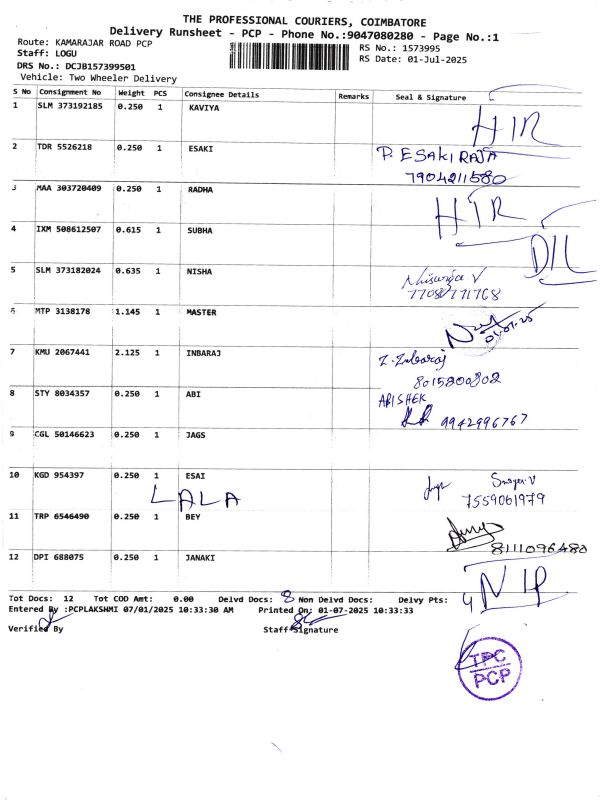 THE PROFESSIONAL COURIERS, COIMBATORE
Delivery Runsheet - PCP - Phone No.:9047080280 - Page No.:1
Route: KAMARAJAR ROAD PCP
RS No.: 1573995
Staff: LOGU
RS Date: 01-Jul-2025
DRS No.: DCJB157399501
Vehicle: Two Wheeler Delivery
S No Consignment No Weight PCS Consignee Details Remarks Seal & Signature
1 SLM 373192185 0.250 1 KAVIYA
2 TDR 5526218 0.250 1 ESAKI P. ESAKI RAJA
7904211580
3 MAA 303720409 0.250 1 RADHA
4 IXM 508612507 0.615 1 SUBHA
5 SLM 373182024 0.635 1 NISHA
7708771768
6 MTP 3138178 1.145 1 MASTER
01-07-25
7 KMU 2067441 2.125 1 INBARAJ
8015800802
8 STY 8034357 0.250 1 ABI ABISHEK
9942996767
9 CGL 50146623 0.250 1 JAGS
10 KGD 954397 0.250 1 ESAI
LALA 7559061979
11 TRP 6546490 0.250 1 BEY
8111096480
12 DPI 688075 0.250 1 JANAKI
Tot Docs: 12 Tot COD Amt: 0.00 Delvd Docs: 8 Non Delvd Docs: 4 Delvy Pts:
Entered By :PCPLAKSHMI 07/01/2025 10:33:30 AM Printed On: 01-07-2025 10:33:33
Verified By Staff Signature
TPC
PCP